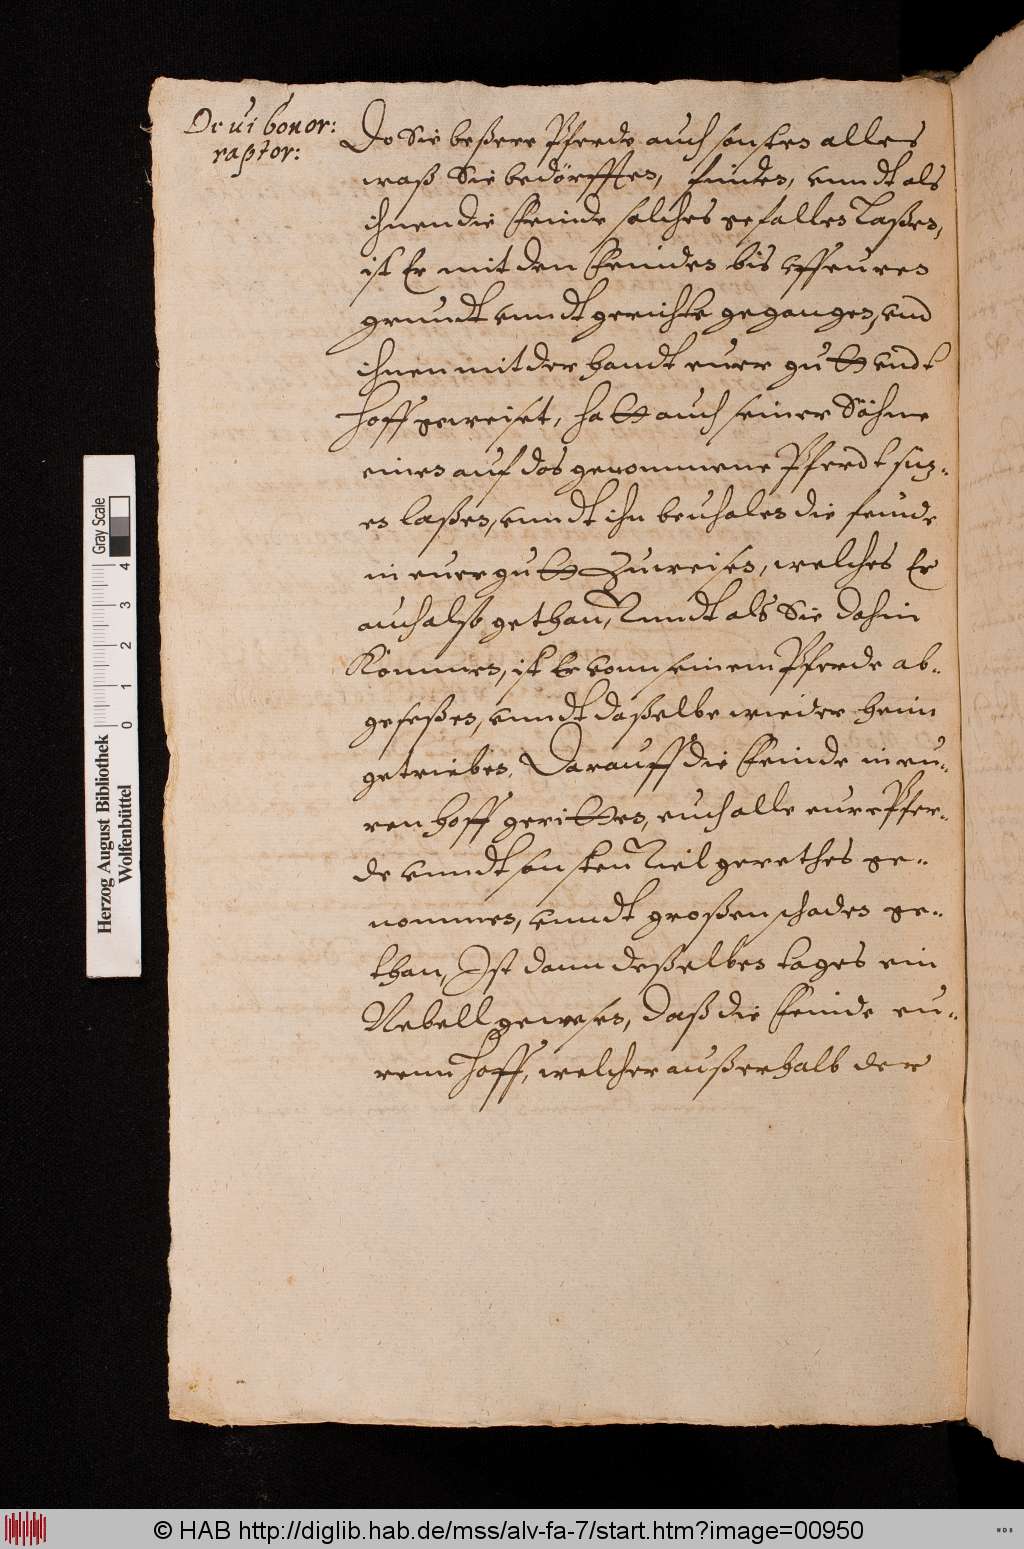 De ui bonor:
raptor:
Do Sie beßere Pferde auch sonsten alles
waß Sie bedörfften, finden, vnndt als
ihnen die Feinde solches gefallen laßen,
ist Er mit den Feinden bis vff euren
grundt vnndt gerichte gegangen, vnd
ihnen mit der handt euer gutt vndt
hoff geweiset, hatt auch seiner Söhne
einen auf das genommene Pferdt siz-
en laßen, vnndt ihn beuhalen die feinde
in euer gutt Zuweisen, welches Er
auch also gethan, Vnndt als Sie dahin
Kommen, ist Er vonn seinem Pferde ab-
geseßen, vnndt daßelbe wieder heim
getrieben, Darauff die Feinde in eu-
ren hoff geritten, euch alle eure Pfer-
de vnndt sonsten Viel gerethes ge-
nommen, vnndt großen schaden ge-
than, Ist dann deßelben tages ein
Nebell gewesen, daß die Feinde eu-
renn hoff, welcher außerhalb der
Herzog August Bibliothek
Wolfenbüttel
Gray Scale
0 1 2 3 4
© HAB http://diglib.hab.de/mss/alv-fa-7/start.htm?image=00950